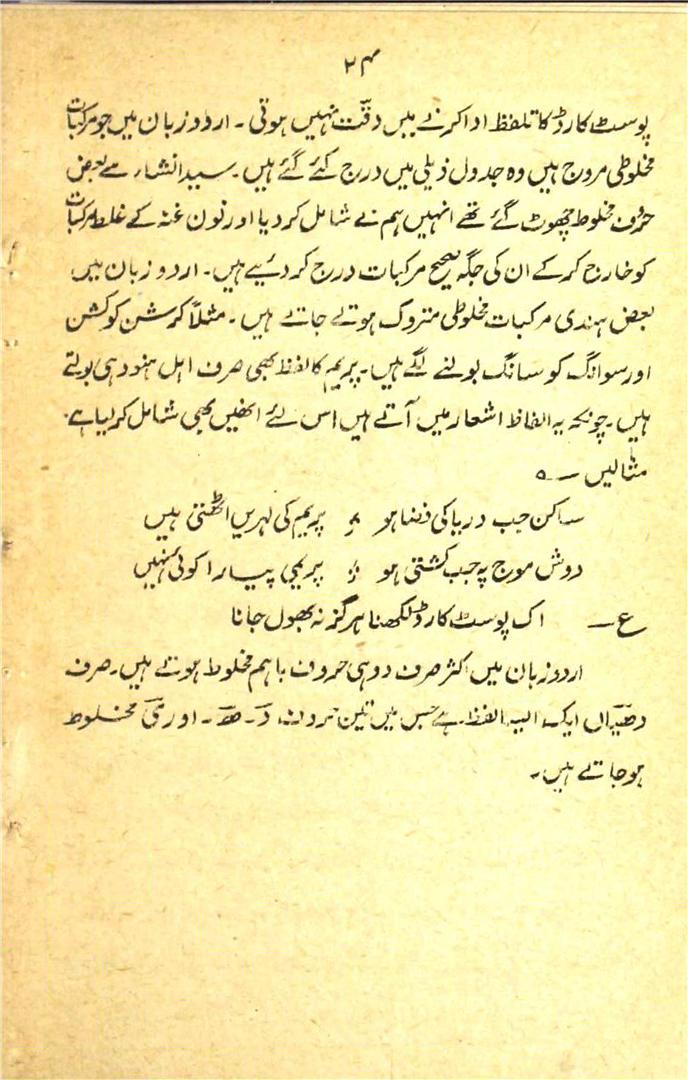 ۲۴
پوسٹ کارڈ کا تلفظ ادا کرنے میں دقت نہیں ہوتی ۔ اردو زبان میں جو مرکبات
مخلوطی مروج ہیں وہ جدول ذیل میں درج کئے گئے ہیں ۔ سید انشاء سے بعض
حروف مخلوط چھوٹ گئے تھے انہیں ہم نے شامل کر دیا اور نون غنہ کے غلط مرکبات
کو خارج کر کے ان کی جگہ صحیح مرکبات درج کر دیے ہیں ۔ اردو زبان میں
بعض ہندی مرکبات مخلوطی متروک ہوتے جاتے ہیں ۔ مثلاً کرشن کو کشن
اور سوانگ کو سانگ بولنے لگے ہیں ۔ پریم کا لفظ بھی صرف اہل ہنود ہی بولتے
ہیں ۔ چونکہ یہ الفاظ اشعار میں آتے ہیں اس لئے انھیں بھی شامل کر لیا ہے ۔
مثالیں ــ ہ
ساکن جب دریا کی فضا ہو ؛ پریم کی لہریں اٹھتی ہیں
دوش موج پہ جب کشتی ہو ؛ پریمی پیارا کوئی نہیں
ع ــ اک پوسٹ کارڈ لکھنا ہرگز نہ بھول جانا
اردو زبان میں اکثر صرف دو ہی حروف باہم مخلوط ہوتے ہیں ۔ صرف
دھیان ایک ایسا لفظ ہے جس میں تین حروف د ۔ ھ ۔ اور ی مخلوط
ہو جاتے ہیں ۔